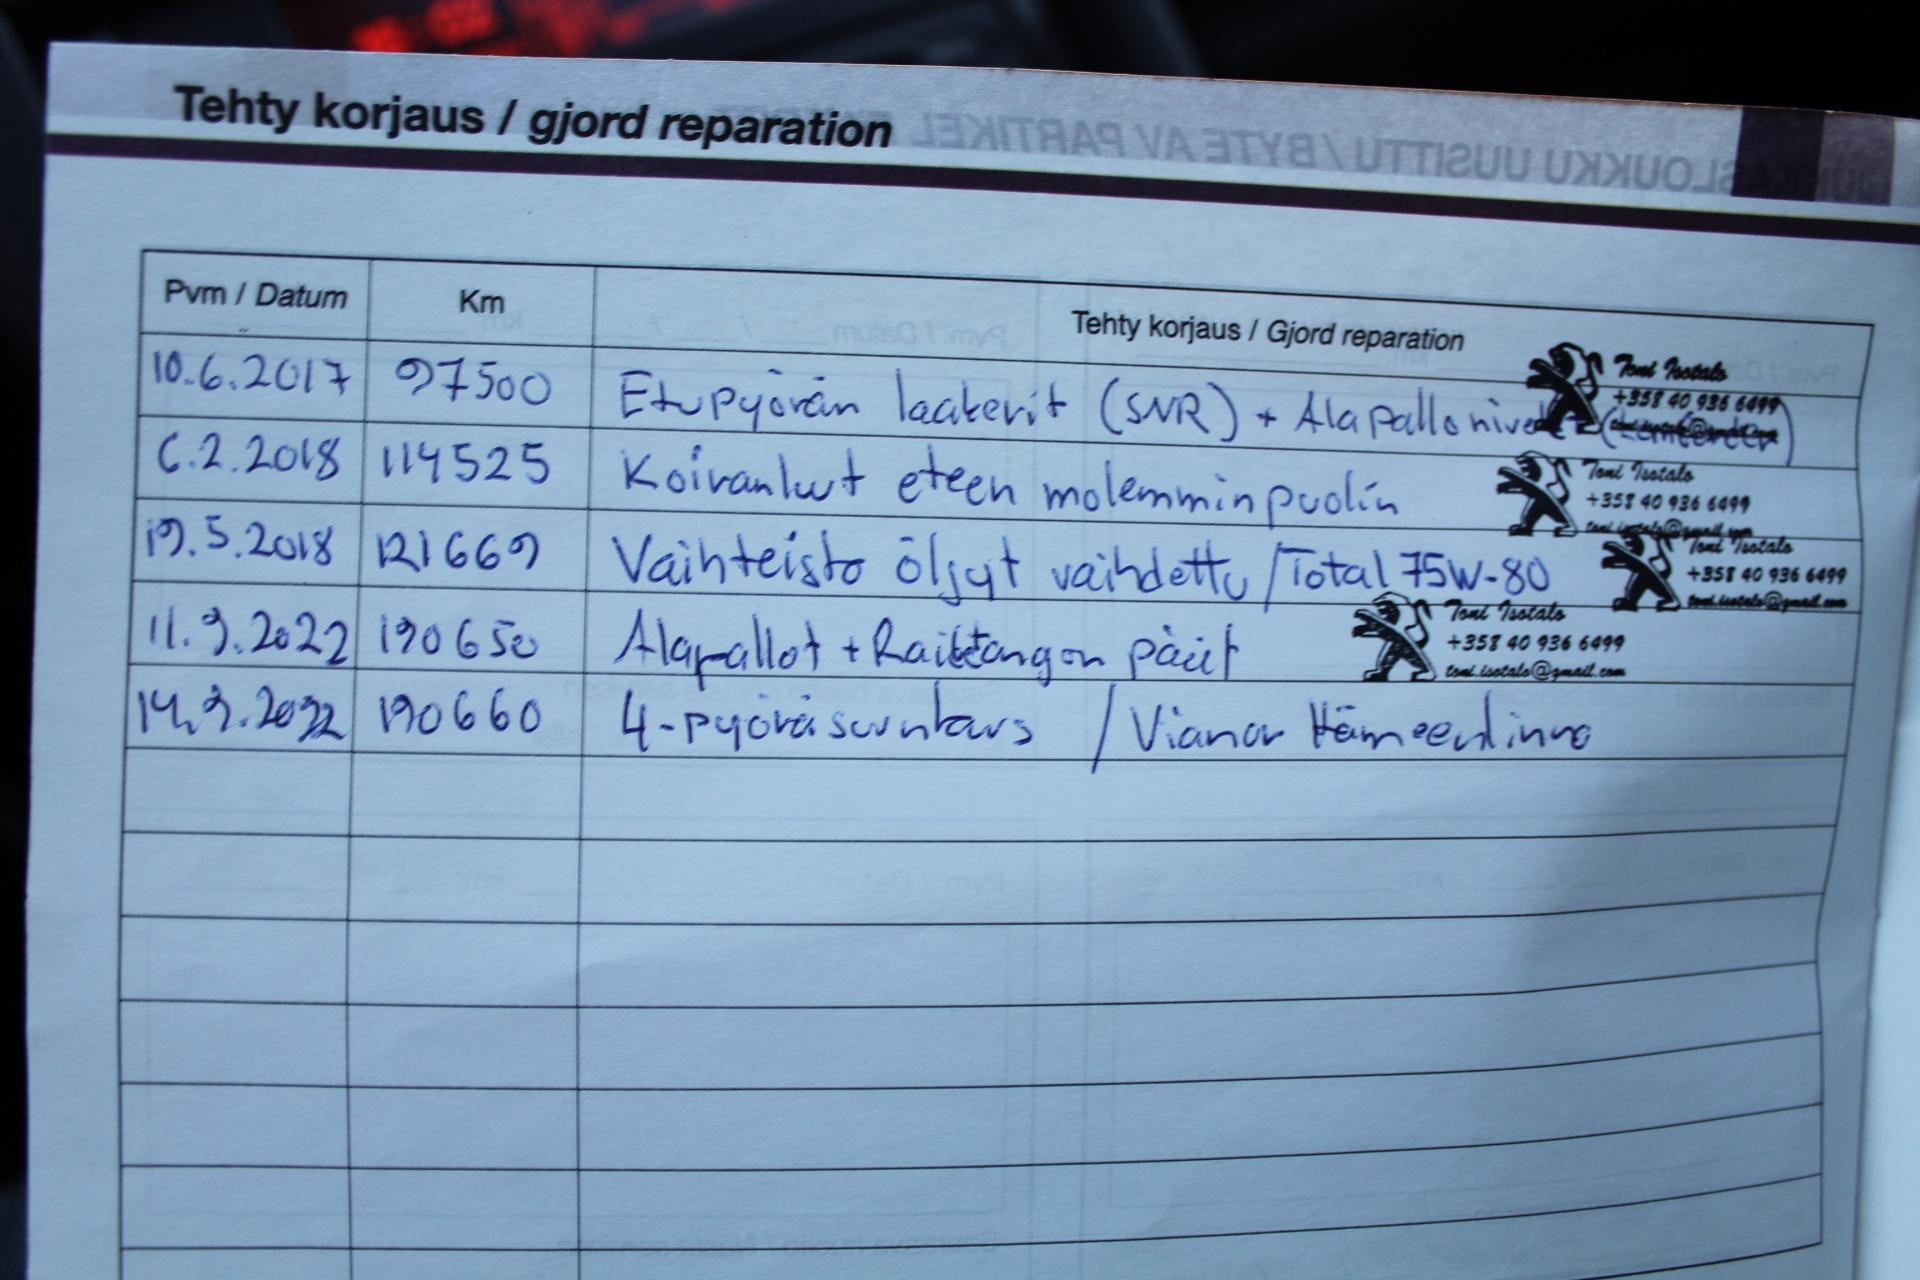 Tehty korjaus / gjord reparation
Pvm / Datum Km Tehty korjaus / Gjord reparation
10.6.2017 97500 Etupyörän laakerit (SNR) + Alapallonivelet
Toni Isotalo
+358 40 936 6499
6.2.2018 114525 Koiranluut eteen molemmin puolin
Toni Isotalo
+358 40 936 6499
toni.isotalo@gmail.com
19.5.2018 121669 Vaihteisto öljyt vaihdettu / Total 75W-80
Toni Isotalo
+358 40 936 6499
toni.isotalo@gmail.com
11.9.2022 190650 Alapallot + Raidetangon päät
Toni Isotalo
+358 40 936 6499
toni.isotalo@gmail.com
14.9.2022 190660 4-pyöräsuuntaus / Vianor Hämeenlinna